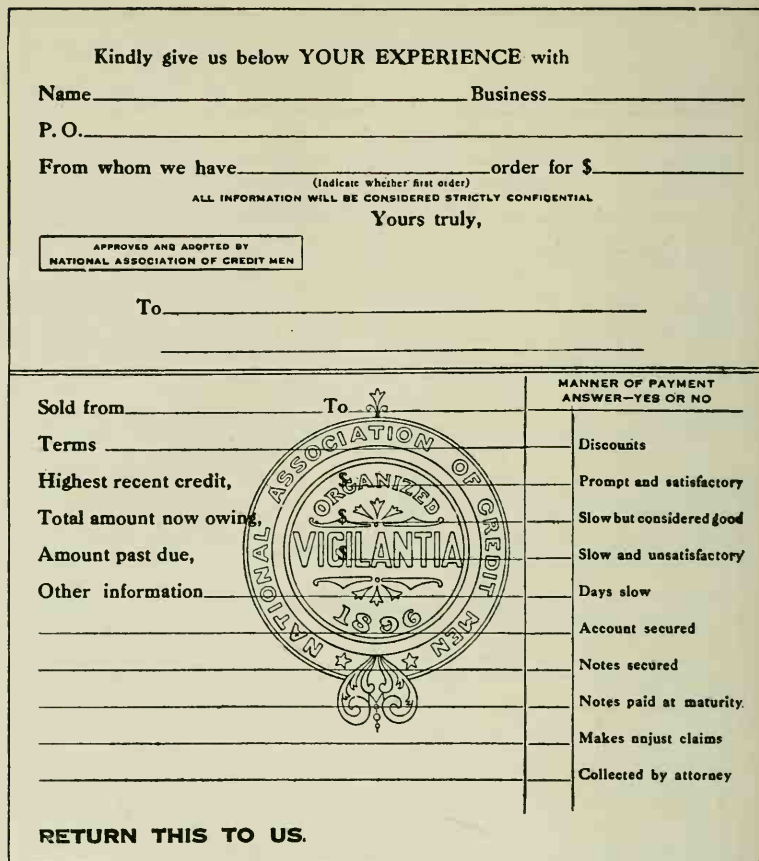 Kindly give us below YOUR EXPERIENCE with
Name Business
P. O.
From whom we have order for $
(Indicate whether first order)
ALL INFORMATION WILL BE CONSIDERED STRICTLY CONFIDENTIAL
Yours truly,
APPROVED AND ADOPTED BY
NATIONAL ASSOCIATION OF CREDIT MEN
To
MANNER OF PAYMENT
ANSWER—YES OR NO
Sold from To
Terms
Highest recent credit, $
Total amount now owing, $
Amount past due, $
Other information
NATIONAL ASSOCIATION OF CREDIT MEN
ORGANIZED
VIGILANTIA
1896
Discounts
Prompt and satisfactory
Slow but considered good
Slow and unsatisfactory
Days slow
Account secured
Notes secured
Notes paid at maturity.
Makes nnjust claims
Collected by attorney
RETURN THIS TO US.